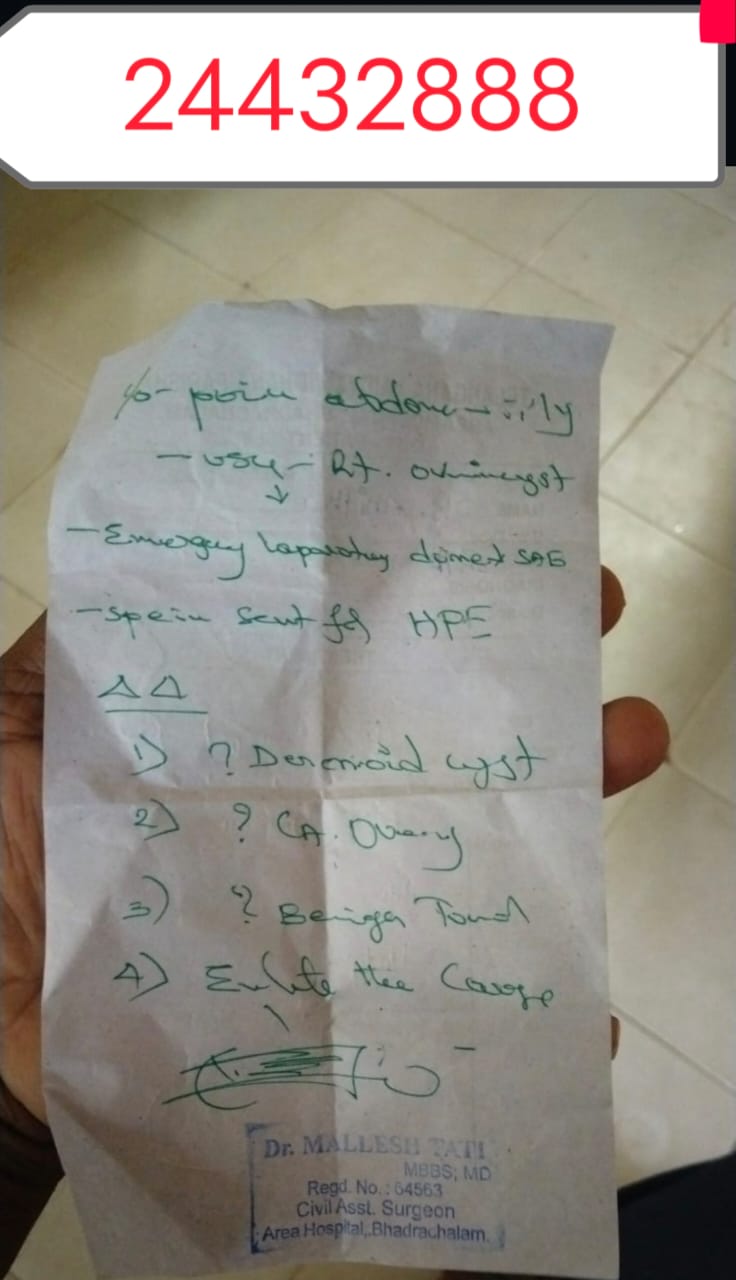 24432888
c/o - pain abdomen -
- USG - Rt. ovarian cyst
- Emergency laparotomy done at
- specimen sent for HPE
ΔΔ
1) ? Dermoid cyst
2) ? CA. Ovary
3) ? Benign
4) the Cause
Dr. MALLESH TATI
MBBS; MD
Regd. No.: 64563
Civil Asst. Surgeon
Area Hospital, Bhadrachalam.